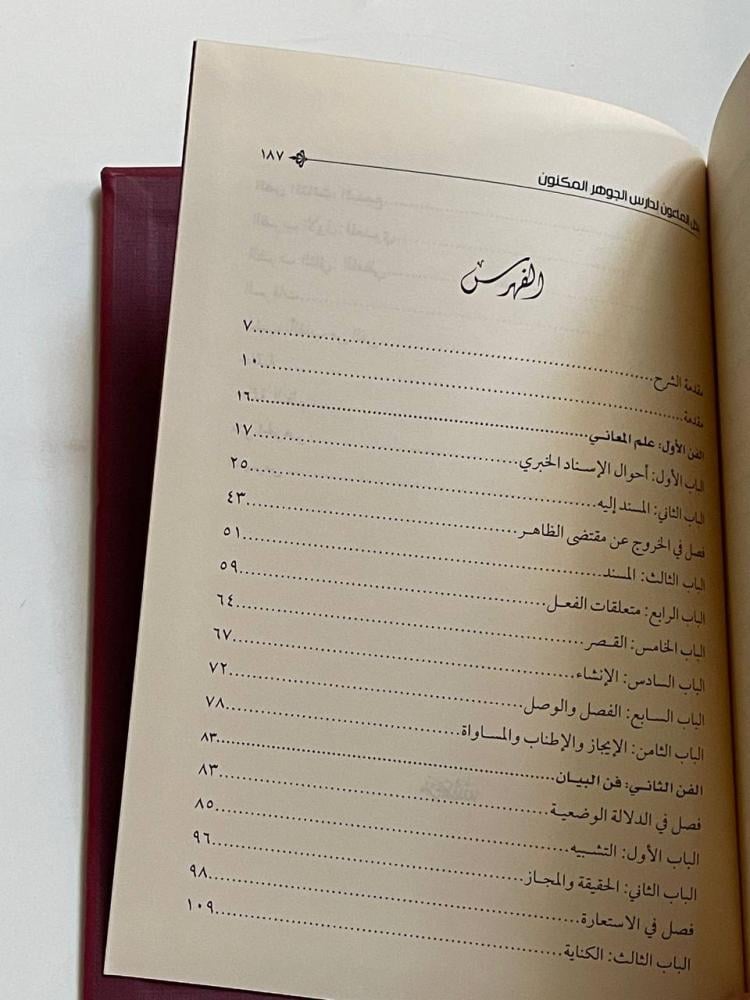 الماعون لدارس الجوهر المكنون ١٨٧
الفهرس
مقدمة الشرح ٧
مقدمة ١٠
الفن الأول: علم المعاني ١٦
الباب الأول: أحوال الإسناد الخبري ١٧
الباب الثاني: المسند إليه ٢٥
فصل في الخروج عن مقتضى الظاهر ٤٣
الباب الثالث: المسند ٥١
الباب الرابع: متعلقات الفعل ٥٩
الباب الخامس: القصر ٦٤
الباب السادس: الإنشاء ٦٧
الباب السابع: الفصل والوصل ٧٢
الباب الثامن: الإيجاز والإطناب والمساواة ٧٨
الفن الثاني: فن البيان ٨٣
فصل في الدلالة الوضعية ٨٣
الباب الأول: التشبيه ٨٥
الباب الثاني: الحقيقة والمجاز ٩٦
فصل في الاستعارة ٩٨
الباب الثالث: الكناية ١٠٩